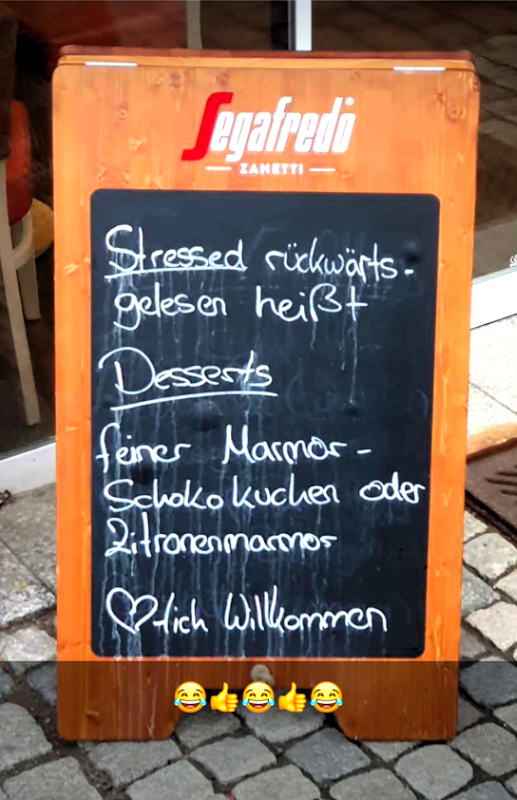 Segafredo
ZANETTI
Stressed rückwärts-
gelesen heißt
Desserts
feiner Marmor-
Schokokuchen oder
Zitronenmarmor
♡lich Willkommen
😂👍😂👍😂